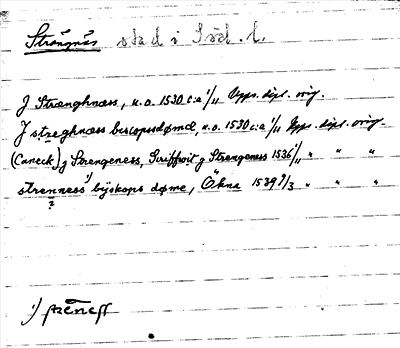 Strängnäs stad i Söd. l.
J Strænghnæss, u.o. 1530 c:a 1/11 Upps. dipl. orig.
J stræghnæss biscopsdømæ, u.o. 1530 c:a 1/11 Upps. dipl. orig.
(Caneck) j Strengeness, Scriffwit j Strengeness 1536 1/11 " " "
strenness 1) bijskops døme, Ökna 1539 9/3 " " "
1) strēness